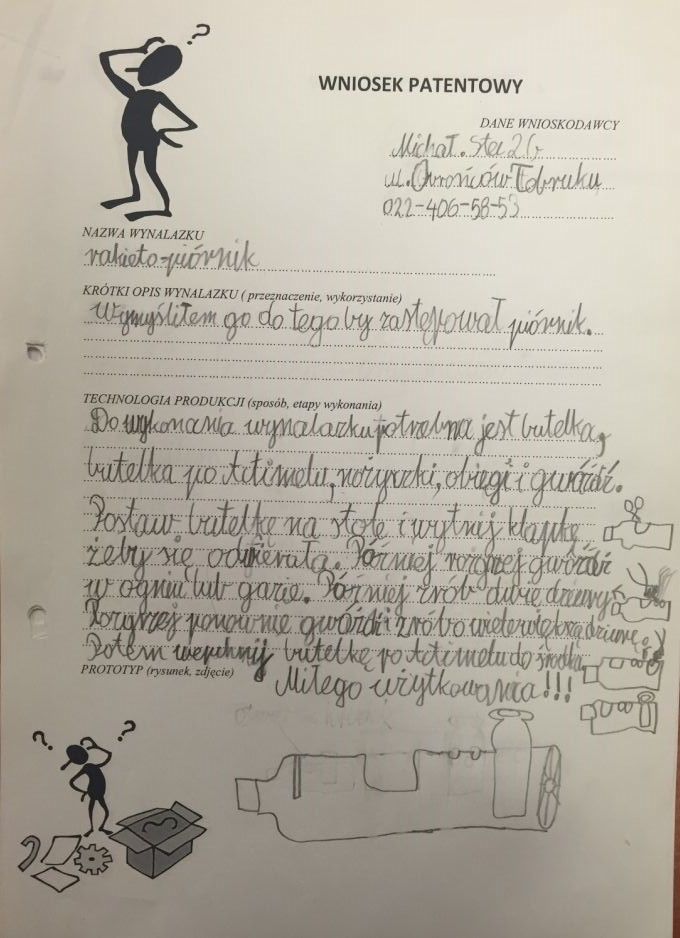 WNIOSEK PATENTOWY
DANE WNIOSKODAWCY
Michał. Stec 2b
ul. Obrońców Tobruku
022-406-58-53
NAZWA WYNALAZKU
rakieto-piórnik
KRÓTKI OPIS WYNALAZKU ( przeznaczenie, wykorzystanie)
Wymyśliłem go do tego by zastępował piórnik.
TECHNOLOGIA PRODUKCJI (sposób, etapy wykonania)
Do wykonania wynalazku potrzebna jest butelka,
butelka po Actimelu, nożyczki, obcęgi i gwóźdź.
Postaw butelkę na stole i wytnij klapkę
żeby się odwierała. Później rozgrzej gwóźdź
w ogniu lub gazie. Później zrób dwie dziury.
Rozgrzej ponownie gwóźdź i zrób o wiele większą dziurę.
Potem wepchnij butelkę po Actimelu do środka.
PROTOTYP (rysunek, zdjęcie)
Miłego użytkowania!!!